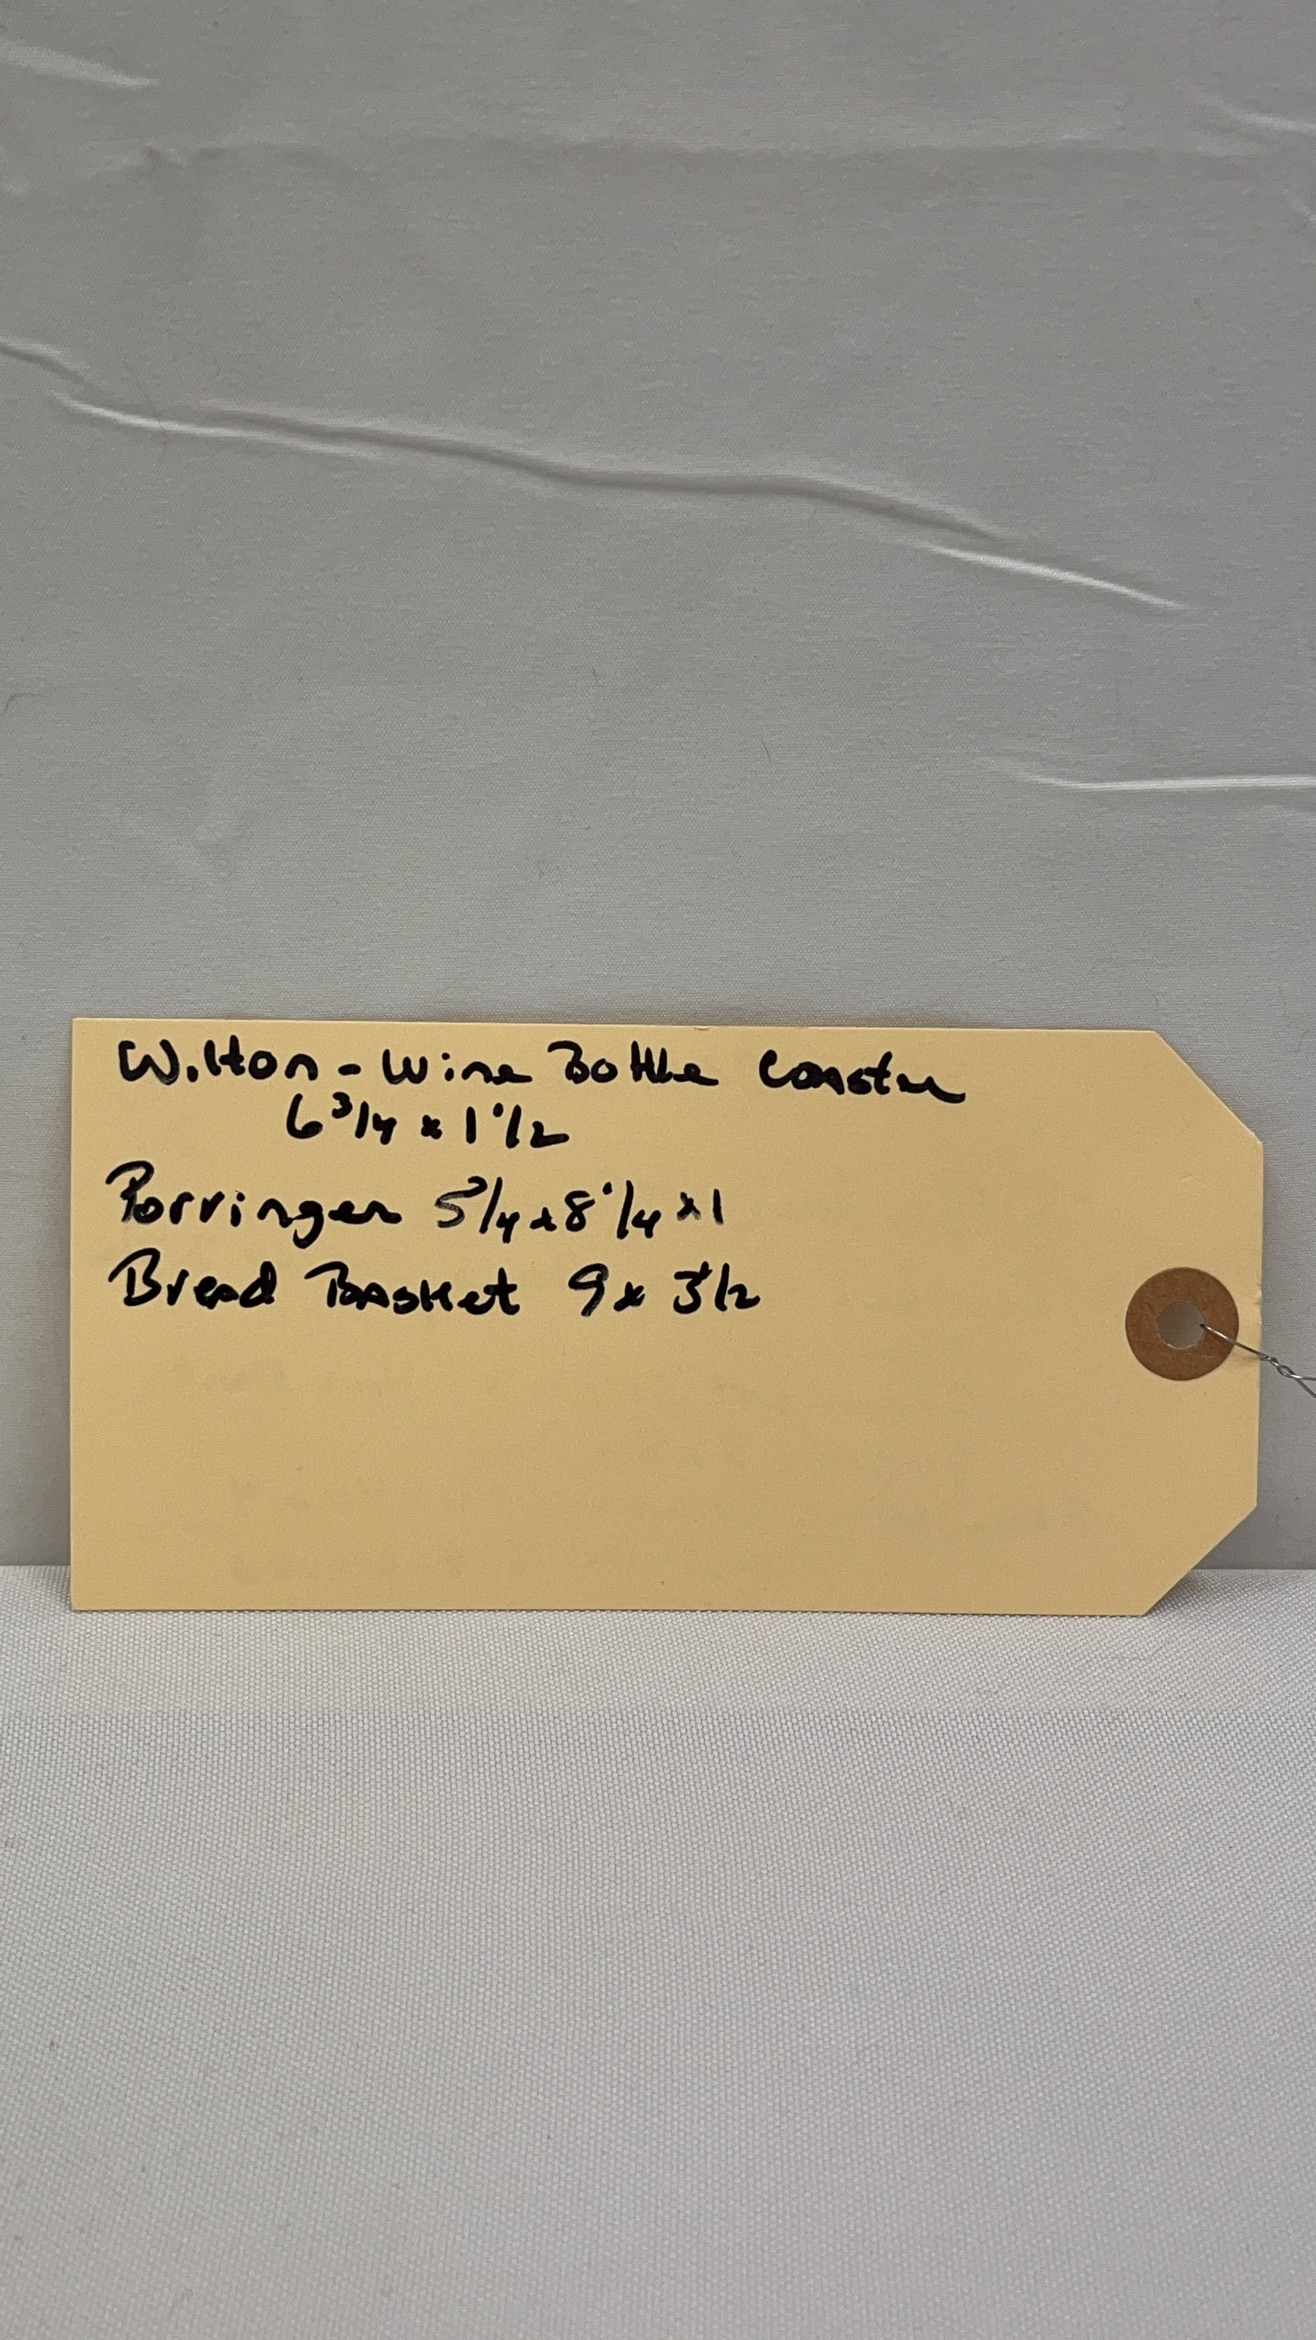 Wilton - Wine Bottle Coaster
6 3/4 x 1 1/2
Porringer 5 3/4 x 8 1/4 x 1
Bread Basket 9 x 3 1/2